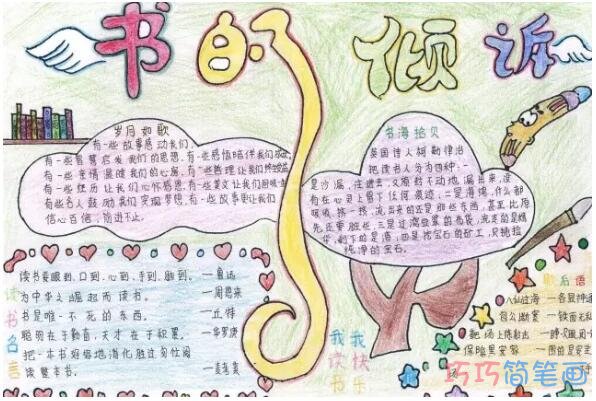 书的倾诉
岁月如歌
有一些故事感动我们,
有一些 启发我们的思想,有一些感情陪伴我们
有一些亲情温暖我们的心房,有一些哲理让我们
有一些经历让我们心怀感恩,有一些美文让我们
有些名人鼓励我们实现梦想,有一些故事里让我们
信心百倍,勇进不止。
书海拾贝
英国诗人柯勒律治
把读书人分为四种:一
是沙漏,注进去,又原封不动地漏出来,
在心灵上留下任何痕迹。二是海绵,什么都
吸收,挤一挤,流出来的还是那些东西,甚至比原
先还脏些。三是过滤
四是 宝石的矿工,只挑拣
纯净的宝石。
读书名言
读书要眼到,口到、心到、手到、脑到。 —鲁迅
为中华之崛起而读书。 —周恩来
书是唯一不死的东西。 —丘特
聪明在于勤奋,天才在于积累。 —华罗庚
把一本书
读整本书。 —麦考莱
我读书
我快乐
歇后语
八仙过海 —各显神通
包公断案 —铁面无私
靶场上
保险
巧巧简笔画